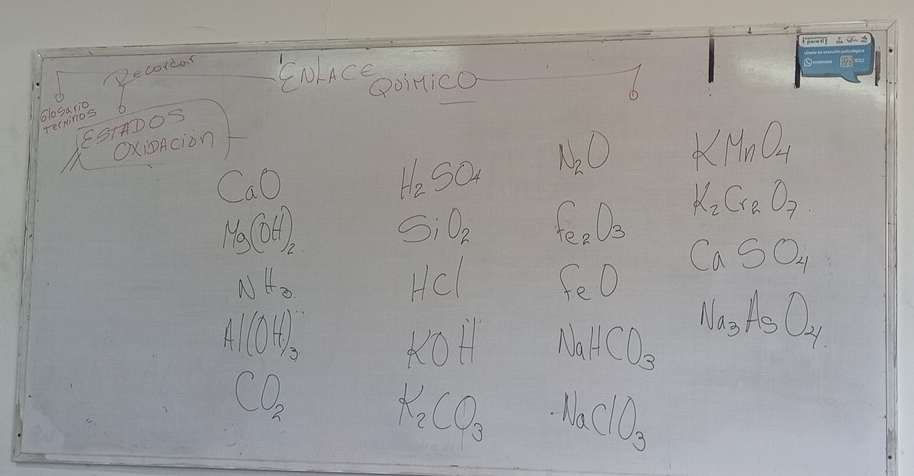 Recordar
ENLACE
QUÍMICO
Glosario
Terminos
ESTADOS
OXIDACIÓN
CaO
Mg(OH)₂
NH₃
Al(OH)₃
CO₂
H₂SO₄
SiO₂
HCl
KOH
K₂CO₃
N₂O
Fe₂O₃
FeO
NaHCO₃
NaClO₃
KMnO₄
K₂Cr₂O₇
CaSO₄
Na₃AsO₄